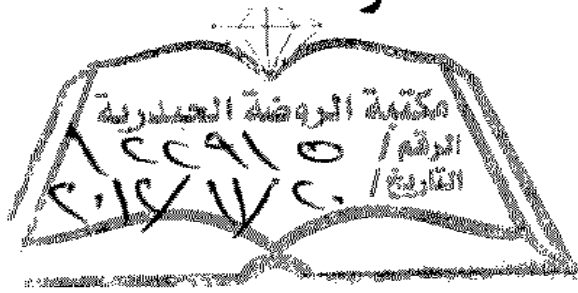 مكتبة الروضة الحيدرية
الرقم / ١٢٢٩١٥
التاريخ / ٢٠١٢/١١/٢٠